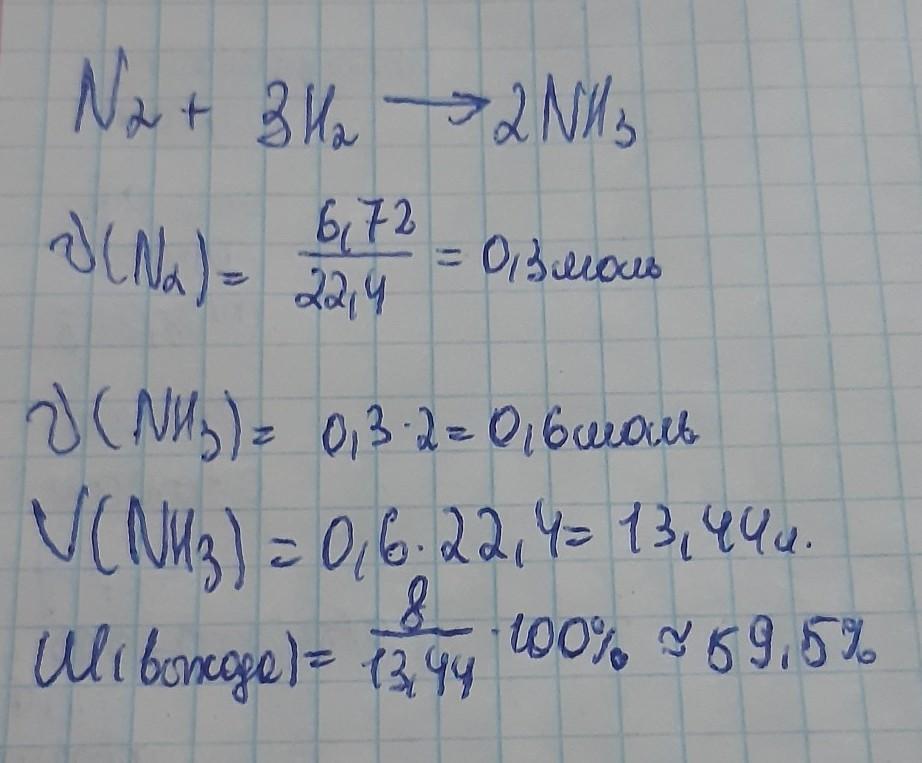 N₂ + 3H₂ → 2NH₃
ν(N₂) = 6,72/22,4 = 0,3 моль
ν(NH₃) = 0,3·2 = 0,6 моль
V(NH₃) = 0,6·22,4 = 13,44 л.
W(выхода) = 8/13,44 · 100% ≈ 59,5%